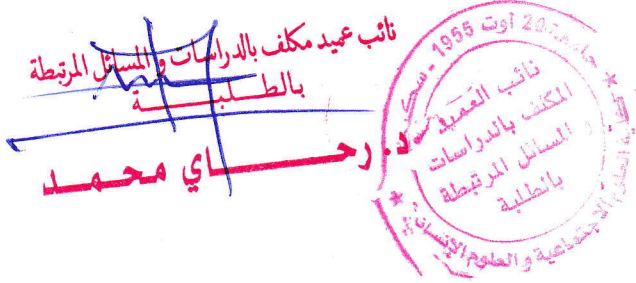 نائب عميد مكلف بالدراسات و المسائل المرتبطة
بالطلبــــــة
د. رحـــــــاي محمـــد
جامعة 20 أوت 1955 - سكي
نائب العميد
المكلف بالدراسات
و المسائل المرتبطة
بالطلبة
العلوم الإجتماعية و العلوم الإنسانية